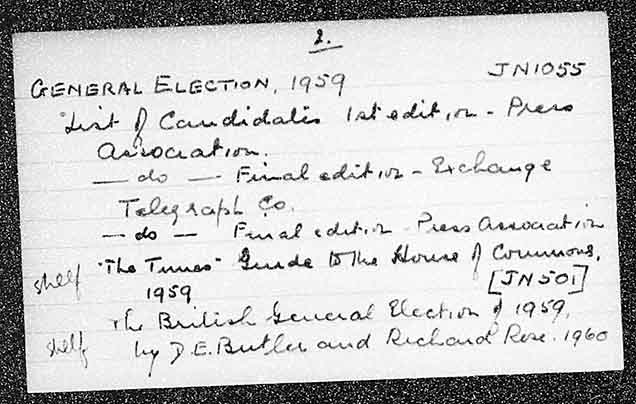 2.
GENERAL ELECTION, 1959 JN1055
List of Candidates 1st edition - Press
Association.
— do — Final edition - Exchange
Telegraph Co.
— do — Final edition - Press Association
shelf "The Times" Guide to the House of Commons,
1959 [JN501]
The British General Election of 1959,
shelf by D.E. Butler and Richard Rose. 1960